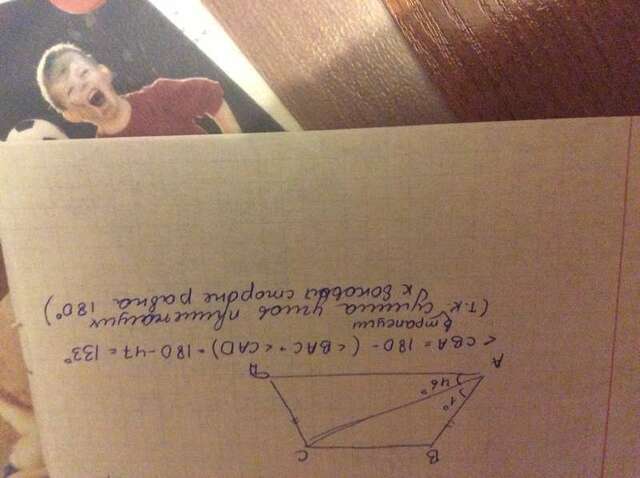 B C
1°
46°
A D
< CBA = 180 - ( < BAC + < CAD) = 180 - 47 = 133°
в трапеции
(т.к сумма углов прилежащих
к боковой стороне равна 180°)